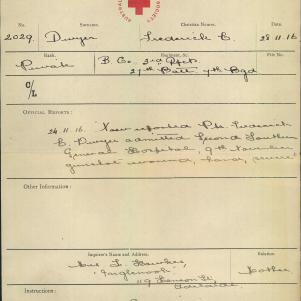 No. Surname. Christian Names. Date.
2029. Dwyer Frederick C. 28.11.16
Rank. Regiment, &c. File No.
Private B. Co. 3rd Rfcts.
27th Batt. 7th Bgd
OFFICIAL REPORTS:
24.11.16. Now reported Pte Frederick
C. Dwyer admitted Second Southern
General Hospital, 9th November
gunshot wound, hand, severe"
Other Information:
Inquirer's Name and Address. Relation
Mother
Adelaide
Instructions: